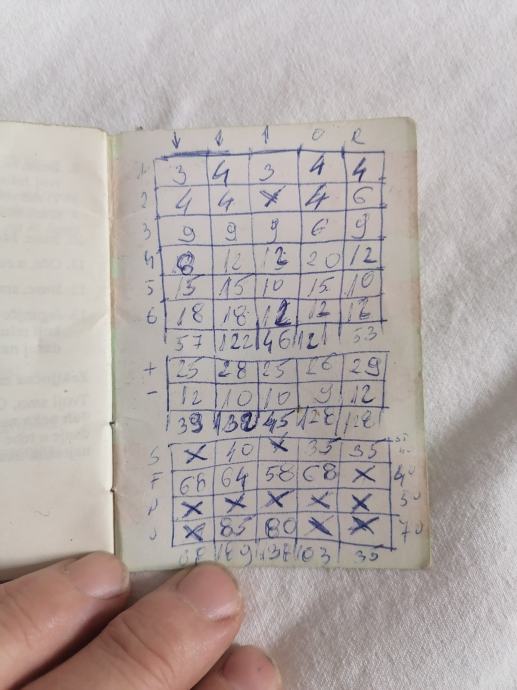 ↓ ↓ ↑ O R
1 3 4 3 4 4
2 4 4 x 4 6
3 9 9 9 6 9
4 8 12 12 20 12
5 15 15 10 15 10
6 18 18 12 12 12
57 122 46 121 53
+ 25 28 25 26 29
- 12 10 10 9 12
39 138 45 128 128
S x 40 x 35 35
F 68 64 58 68 x 40
P x x x x x 50
J x 85 80 x x 70
68 189 138 103 35